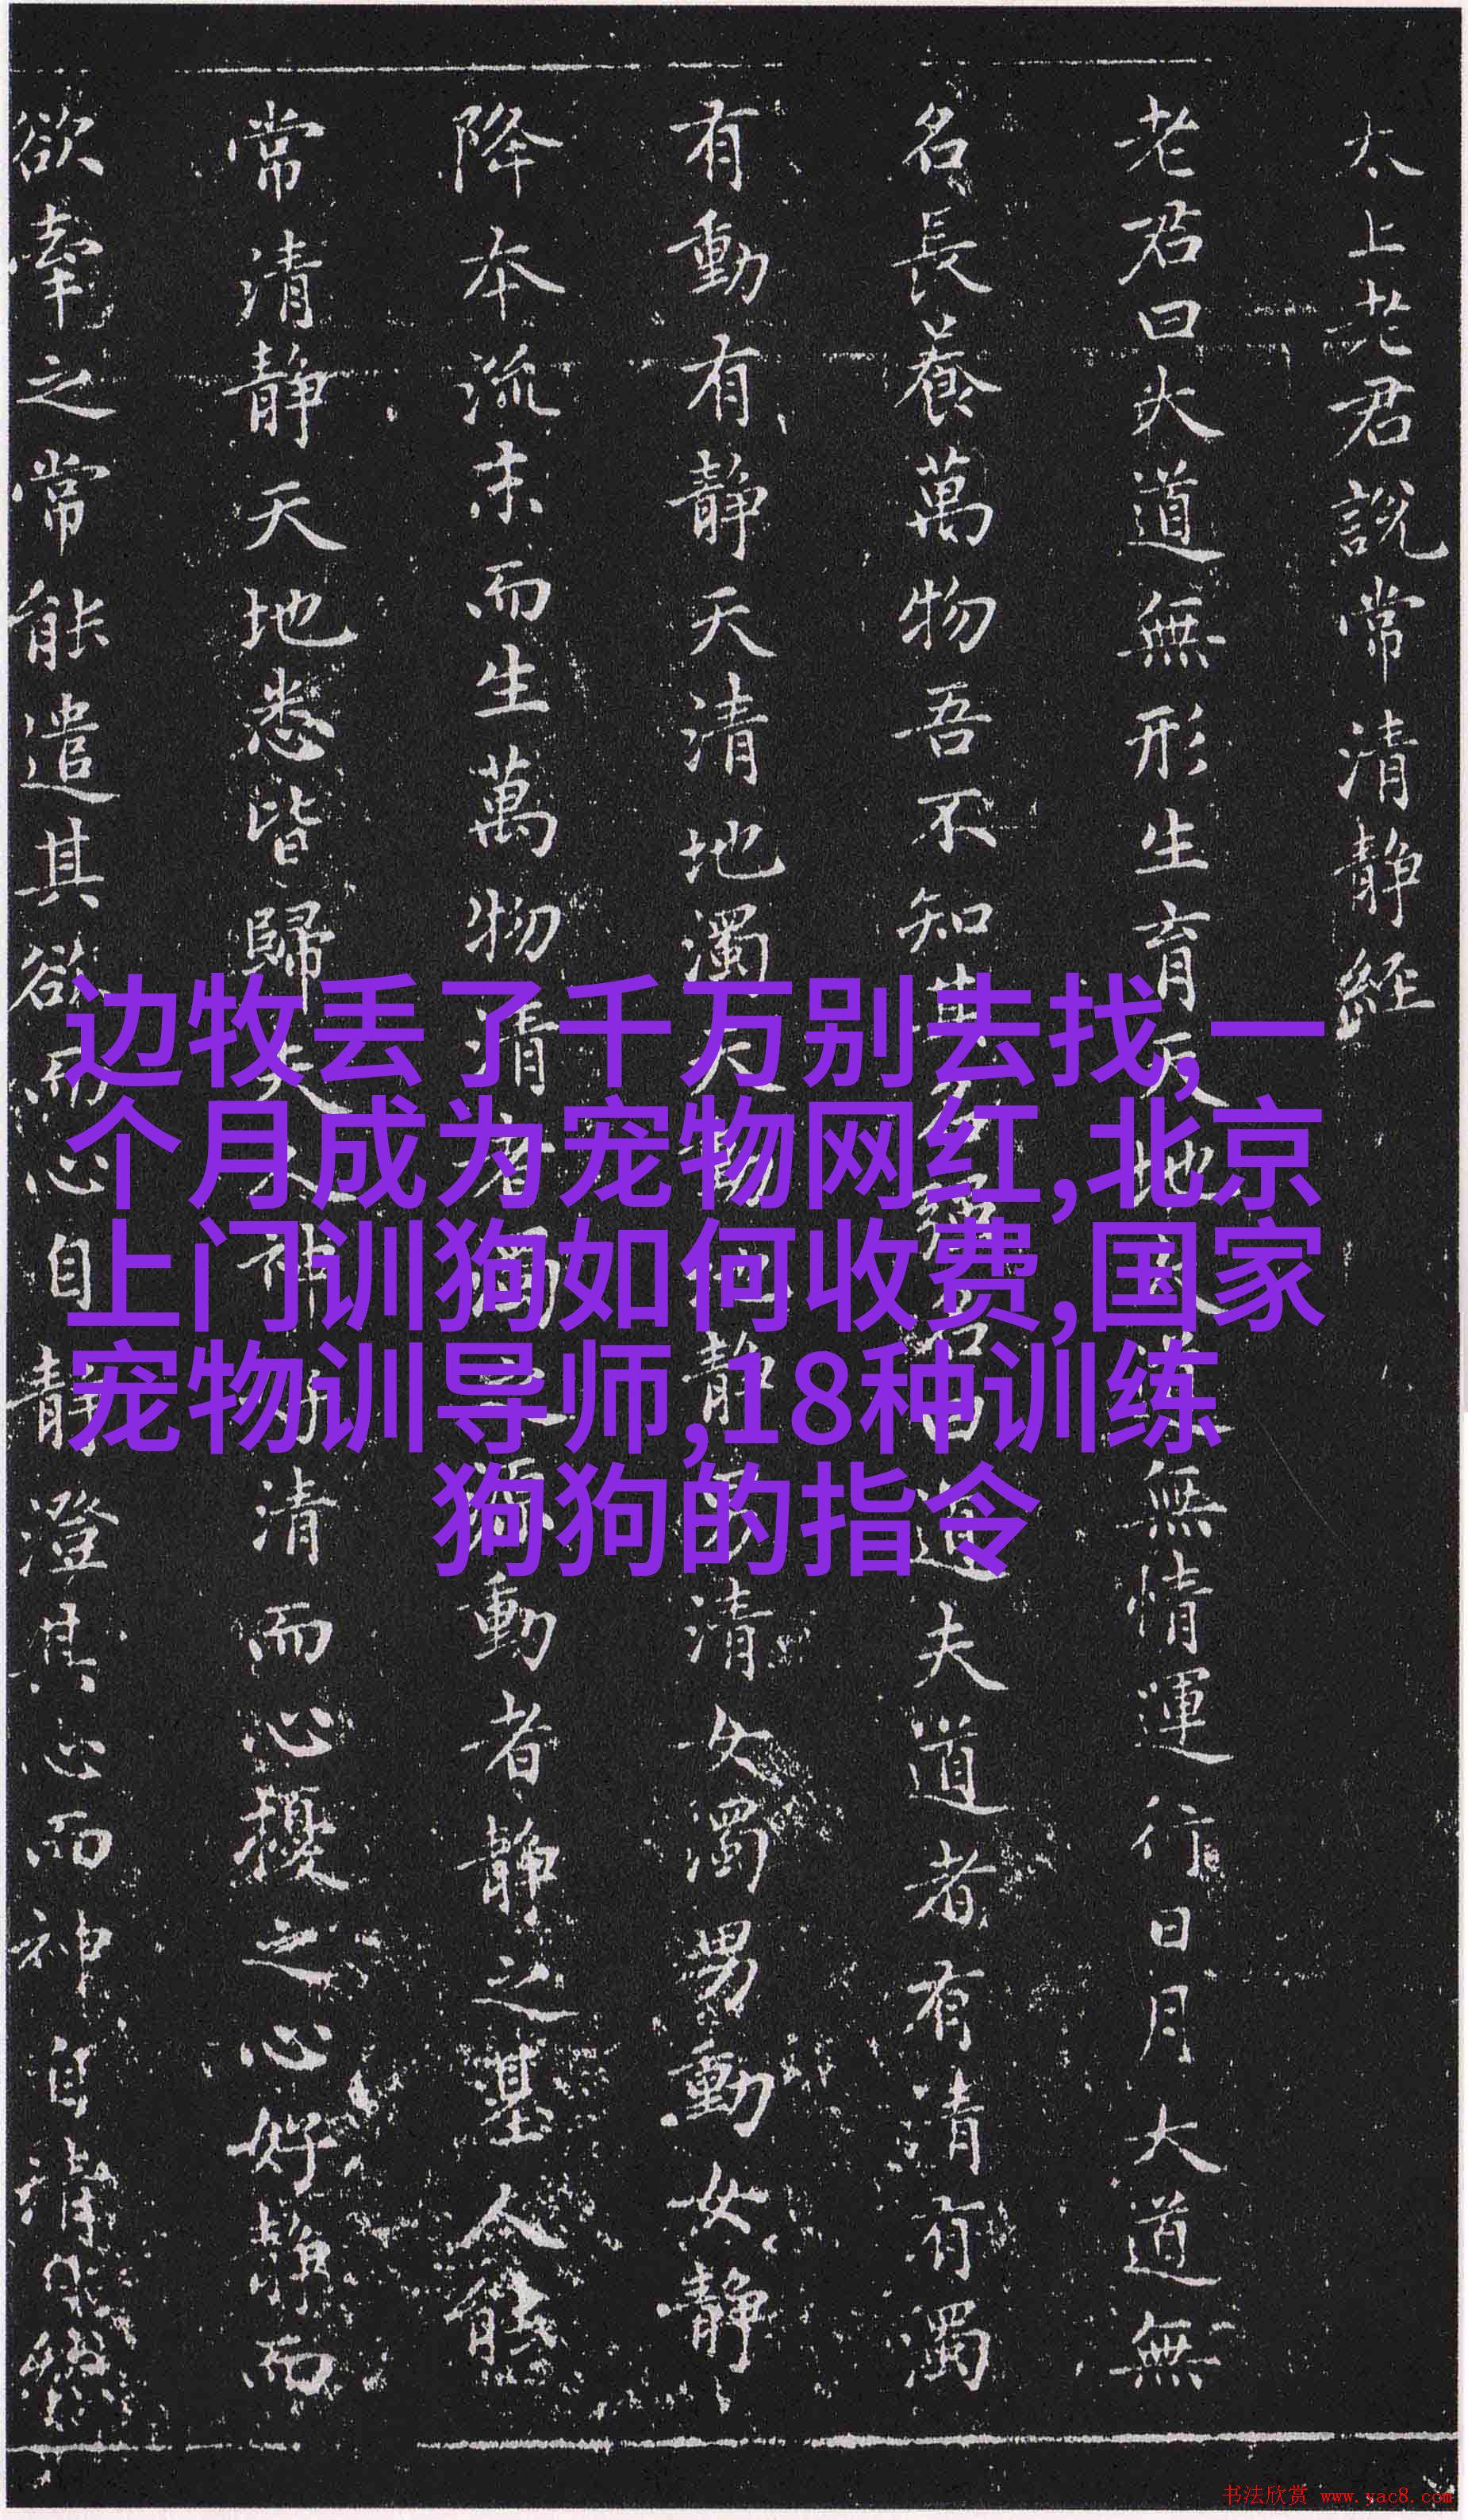 太上老君說常清静經
老君曰大道無形生育天地大道無情運行日月大道無
名長養萬物吾不知其名強名曰道夫道者有清有濁
有動有静天清地濁天動地静男清女濁男動女静
降本流末而生萬物清者濁之源動者静之基人能
常清静天地悉皆歸夫人神好清而心擾之心好静而
欲牽之常能遣其欲而心自静澄其心而神自清
边牧丢了千万别去找,一
个月成为宠物网红,北京
上门训狗如何收费,国家
宠物训导师,18种训练
狗狗的指令
书法欣赏 www.yac8.com